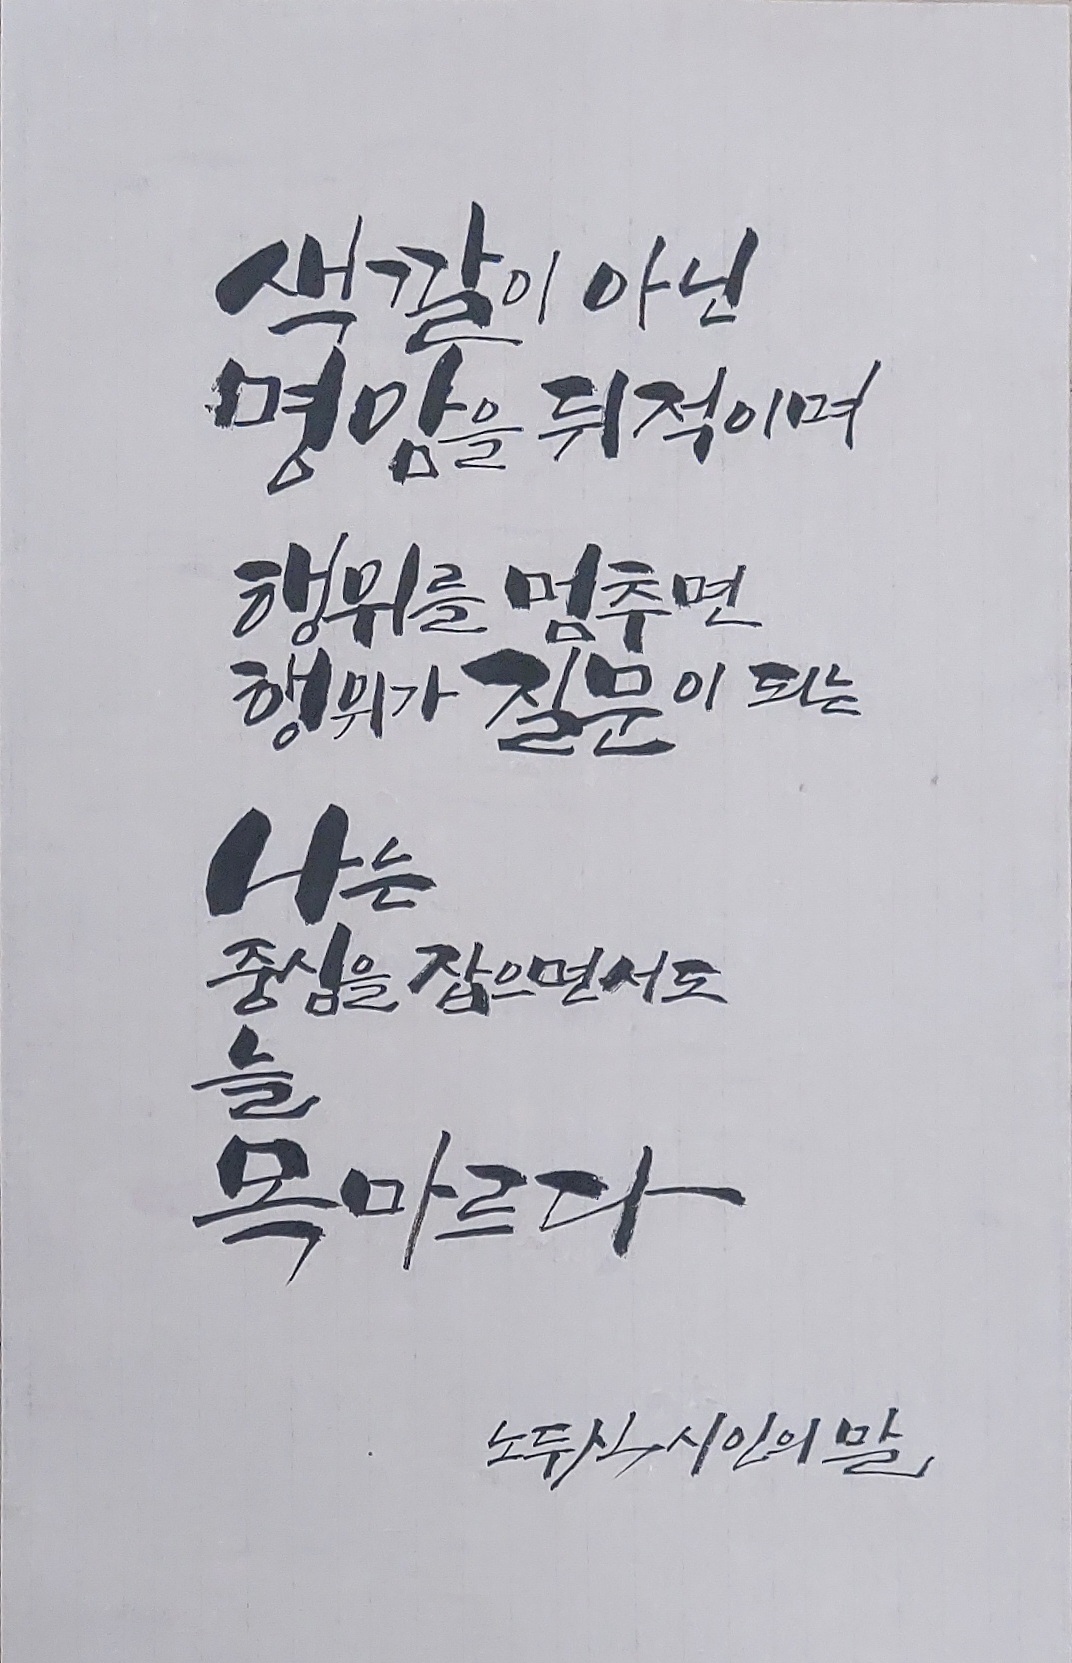 색깔이 아닌
명암을 뒤적이며
행위를 멈추면
행위가 질문이 되는
나는
중심을 잡으면서도
늘
목마르다
노두식 시인의 말